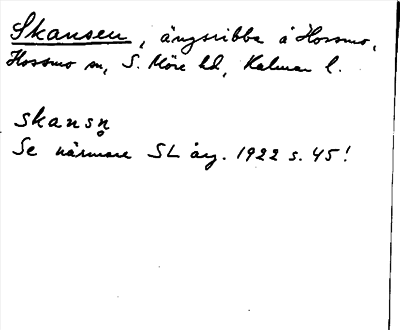 Skansen, ängsribba å Hossmo,
Hossmo sn, S. Möre hd, Kalmar l.
skansn̥
Se närmare SL årg. 1922 s. 45!